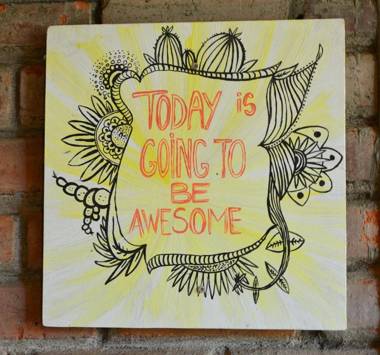 TODAY is
GOING TO
BE
AWESOME